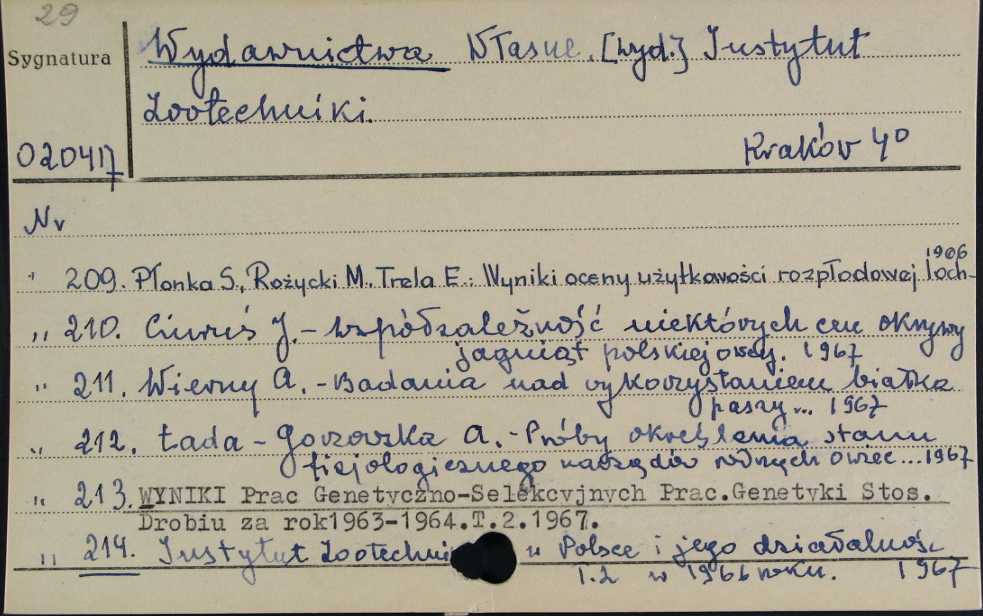 29
Sygnatura
Wydawnictwa Własne. [wyd.] Instytut
Zootechniki.
020417
Kraków 4º
Nr
1966
" 209. Płonka S., Rożycki M., Trela E.: Wyniki oceny użytkowości rozpłodowej loch-
" 210. Ciuruś J. - Współzależność niektórych cech okrywy
jagniąt polskiej owcy. 1967
" 211. Wierny A. - Badania nad wykorzystaniem białka
paszy... 1967
" 212. Łada-Gorzowska A. - Próby określenia stanu
fizjologicznego narządów rodnych owiec...1967
" 213. WYNIKI Prac Genetyczno-Selekcyjnych Prac.Genetyki Stos.
Drobiu za rok1963-1964.T.2.1967.
" 214. Instytut Zootechni w Polsce i jego działalność
T.2 w 1966 roku. 1967